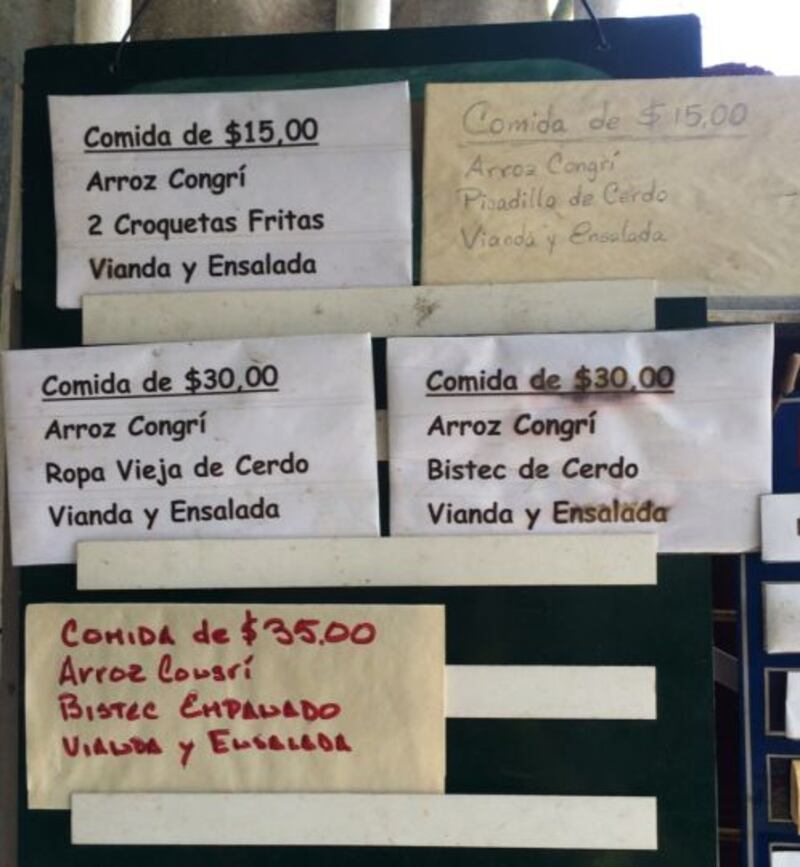 Comida de $15,00
Arroz Congrí
2 Croquetas Fritas
Vianda y Ensalada
Comida de $15,00
Arroz Congrí
Picadillo de Cerdo
Vianda y Ensalada
Comida de $30,00
Arroz Congrí
Ropa Vieja de Cerdo
Vianda y Ensalada
Comida de $30,00
Arroz Congrí
Bistec de Cerdo
Vianda y Ensalada
COMIDA de $35.00
Arroz Congrí
BISTEC EMPANADO
VIANDA y ENSALADA